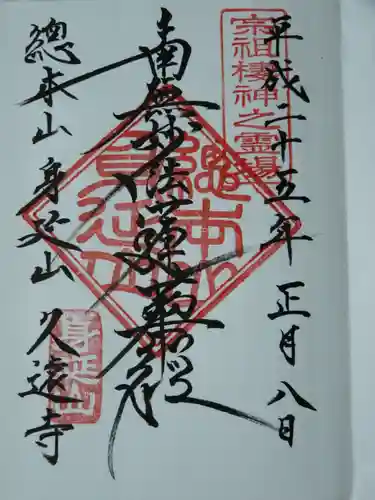 宗祖棲神之霊場
平成二十五年 正月八日
南無妙法蓮華経
總本山 身延山 久遠寺
總本山
身延山
身延山